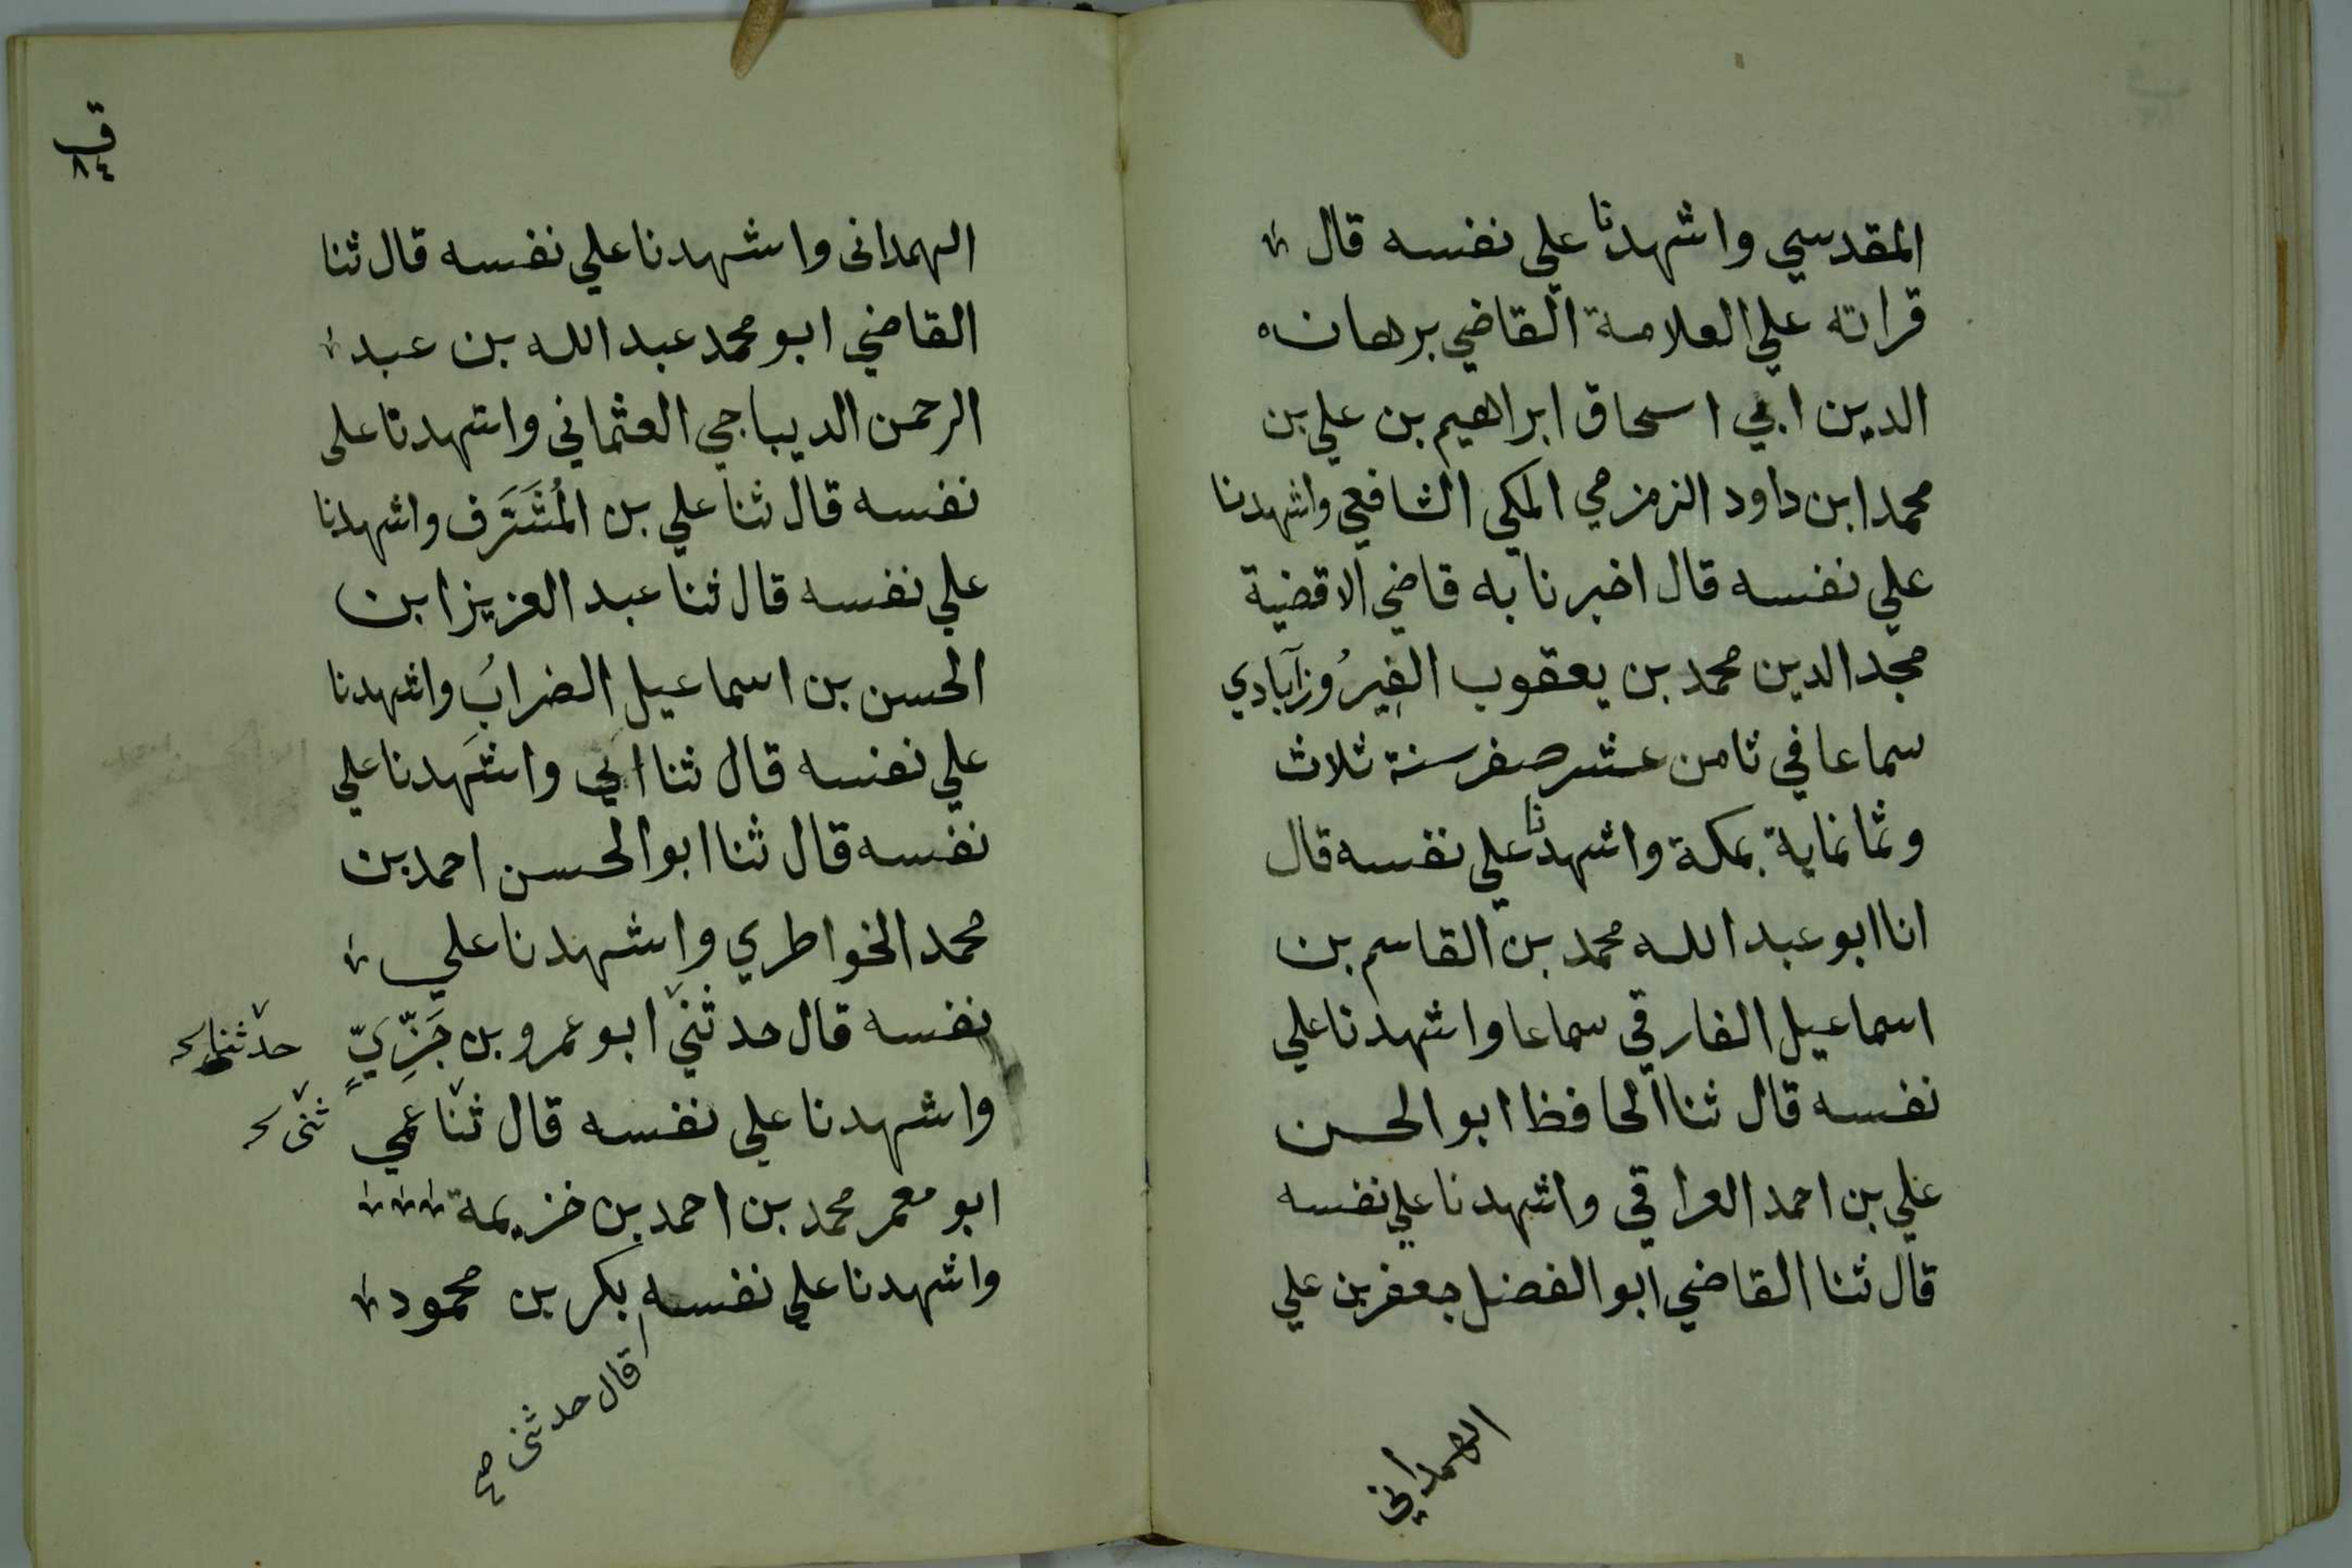 المقدسي واشهدنا علي نفسه قال
قراته علي العلامة القاضي برهان
الدين ابي اسحاق ابراهيم بن علي بن
محمد ابن داود الزمزمي المكي الشافعي واشهدنا
علي نفسه قال اخبرنا به قاضي الاقضية
مجد الدين محمد بن يعقوب الفِيرُوزآبادي
سماعا في ثامن عشر صفر سنة ثلاث
وثمانماية بمكة واشهدنا علي نفسه قال
انا ابو عبد الله محمد بن القاسم بن
اسماعيل الفارقي سماعا واشهدنا علي
نفسه قال ثنا الحافظ ابو الحسن
علي بن احمد العراقي واشهدنا علي نفسه
قال ثنا القاضي ابو الفضل جعفر بن علي
الهمداني
ق
٨٤
الهمدانى واشهدنا علي نفسه قال ثنا
القاضي ابو محمد عبد الله بن عبد
الرحمن الديباجي العثماني واشهدنا على
نفسه قال ثنا علي بن المُشَرَّف واشهدنا
علي نفسه قال ثنا عبد العزيز ابن
الحسن بن اسماعيل الضراب واشهدنا
علي نفسه قال ثنا ابي واشهدنا علي
نفسه قال ثنا ابو الحسن احمد بن
محمد الخواطري واشهدنا علي
نفسه قال حدثني ابو عمرو بن جَزِّيٍّ
حدثنا
واشهدنا علي نفسه قال ثنا عمي
ثنى
ابو معمر محمد بن احمد بن خزيمة
واشهدنا علي نفسه بكر بن محمود
قال حدثنى صح